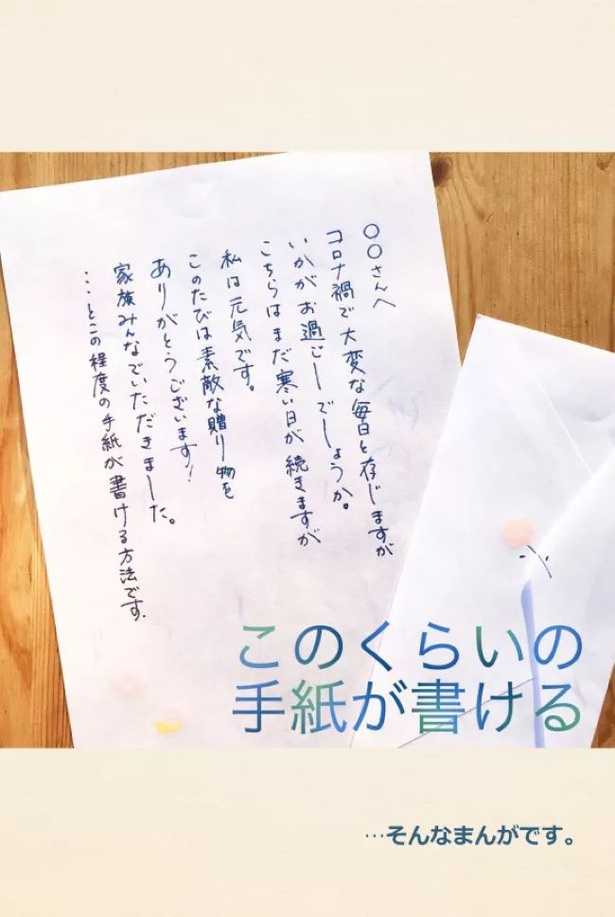 〇〇さんへ
コロナ禍で大変な毎日と存じますが
いかがお過ごしでしょうか。
こちらはまだ寒い日が続きますが
私は元気です。
このたびは素敵な贈り物を
ありがとうございます！
家族みんなでいただきました。
…とこの程度の手紙が書ける方法です.
このくらいの
手紙が書ける
…そんなまんがです。